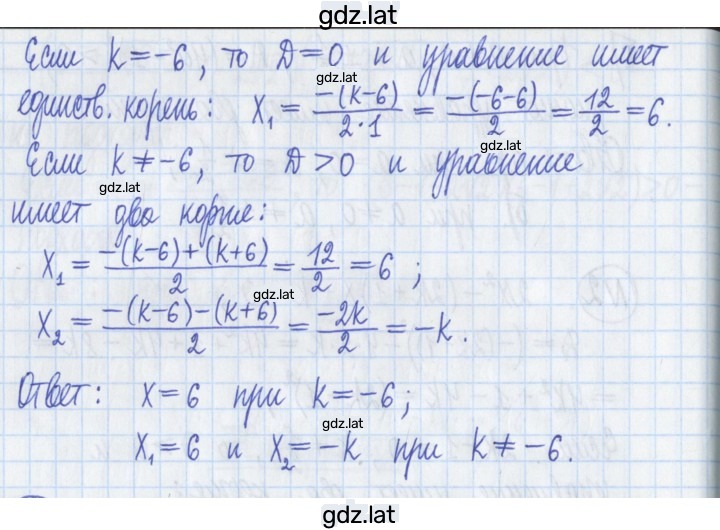 gdz.lat
Если k=-6, то D=0 и уравнение имеет
gdz.lat
единств. корень: x₁ = -(k-6)/2·1 = -(-6-6)/2 = 12/2 = 6.
gdz.lat
Если k≠-6, то D>0 и уравнение
gdz.lat
имеет два корня:
x₁ = -(k-6)+(k+6)/2 = 12/2 = 6 ;
gdz.lat
x₂ = -(k-6)-(k+6)/2 = -2k/2 = -k.
Ответ: x=6 при k=-6;
gdz.lat
x₁=6 и x₂=-k при k≠-6.
gdz.lat